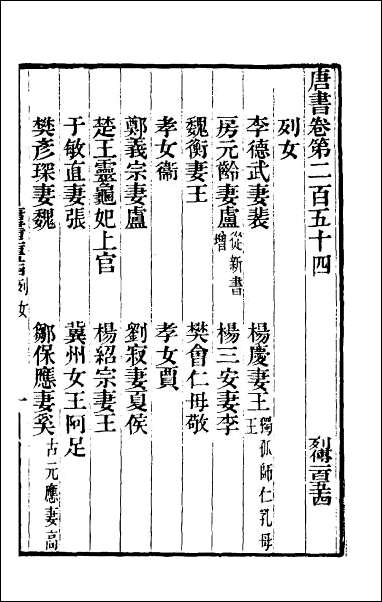 唐書卷第二百五十四 列傳二百五十四
列女
李德武妻裴 楊慶妻王 獨孤師仁孔母王
房元齡妻盧 從新書增 楊三安妻李
魏衡妻王 樊會仁母敬
孝女衞 孝女賈
鄭義宗妻盧 劉寂妻夏侯
楚王靈龜妃上官 楊紹宗妻王
于敏直妻張 冀州女王阿足
樊彥琛妻魏 鄒保應妻奚 古元應妻高
列女 一